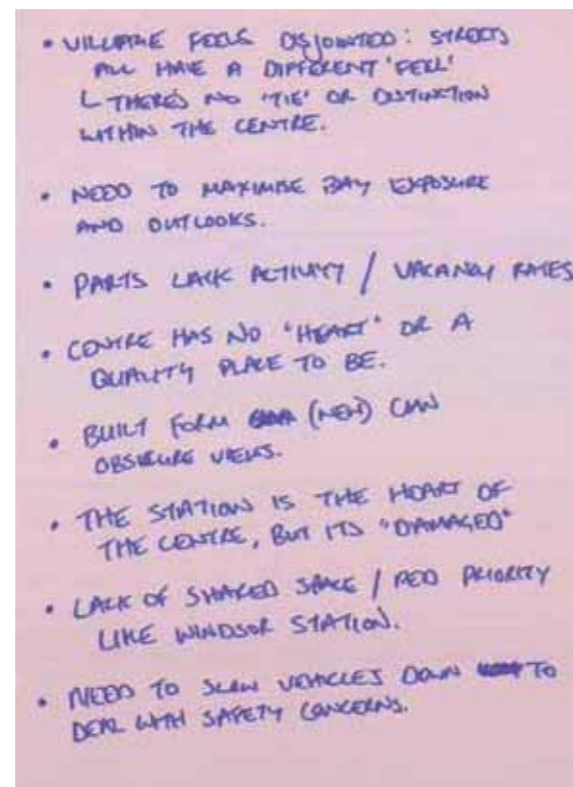 • VILLAGE FEELS DISJOINTED: STREETS
ALL HAVE A DIFFERENT 'FEEL'
L THERE'S NO 'TIE' OR DISTINCTION
WITHIN THE CENTRE.
• NEED TO MAXIMISE BAY EXPOSURE
AND OUTLOOKS.
• PARTS LACK ACTIVITY / VACANCY RATES
• CENTRE HAS NO 'HEART' OR A
QUALITY PLACE TO BE.
• BUILT FORM (NEW) CAN
OBSCURE VIEWS.
• THE STATION IS THE HEART OF
THE CENTRE, BUT ITS "DAMAGED"
• LACK OF SHARED SPACE / PED PRIORITY
LIKE WINDSOR STATION.
• NEED TO SLOW VEHICLES DOWN TO
DEAL WITH SAFETY CONCERNS.